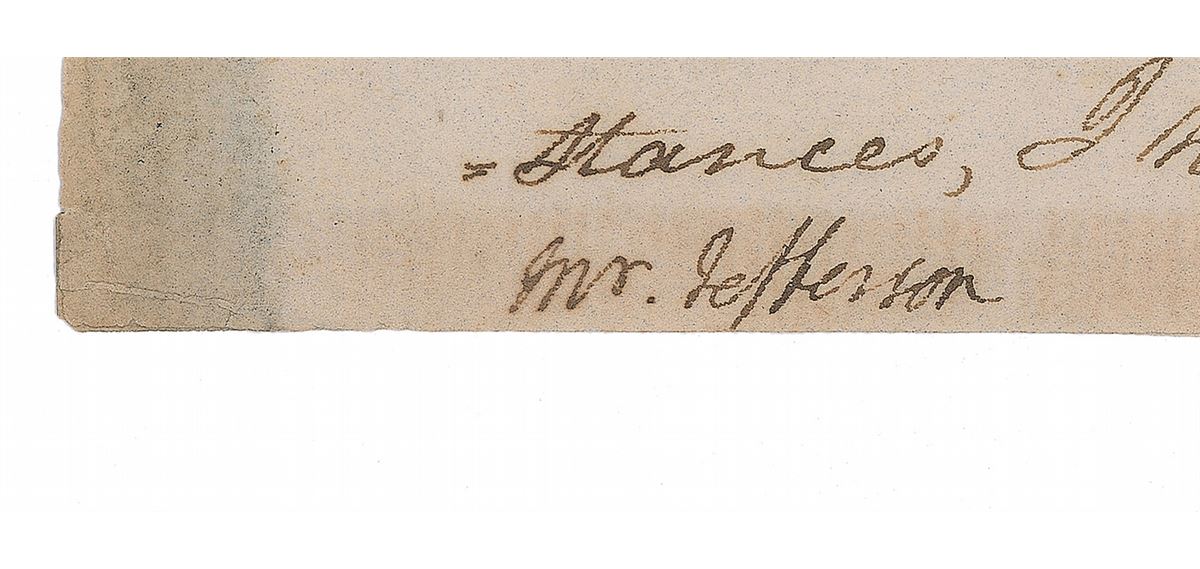 =stances, I
Mr. Jefferson